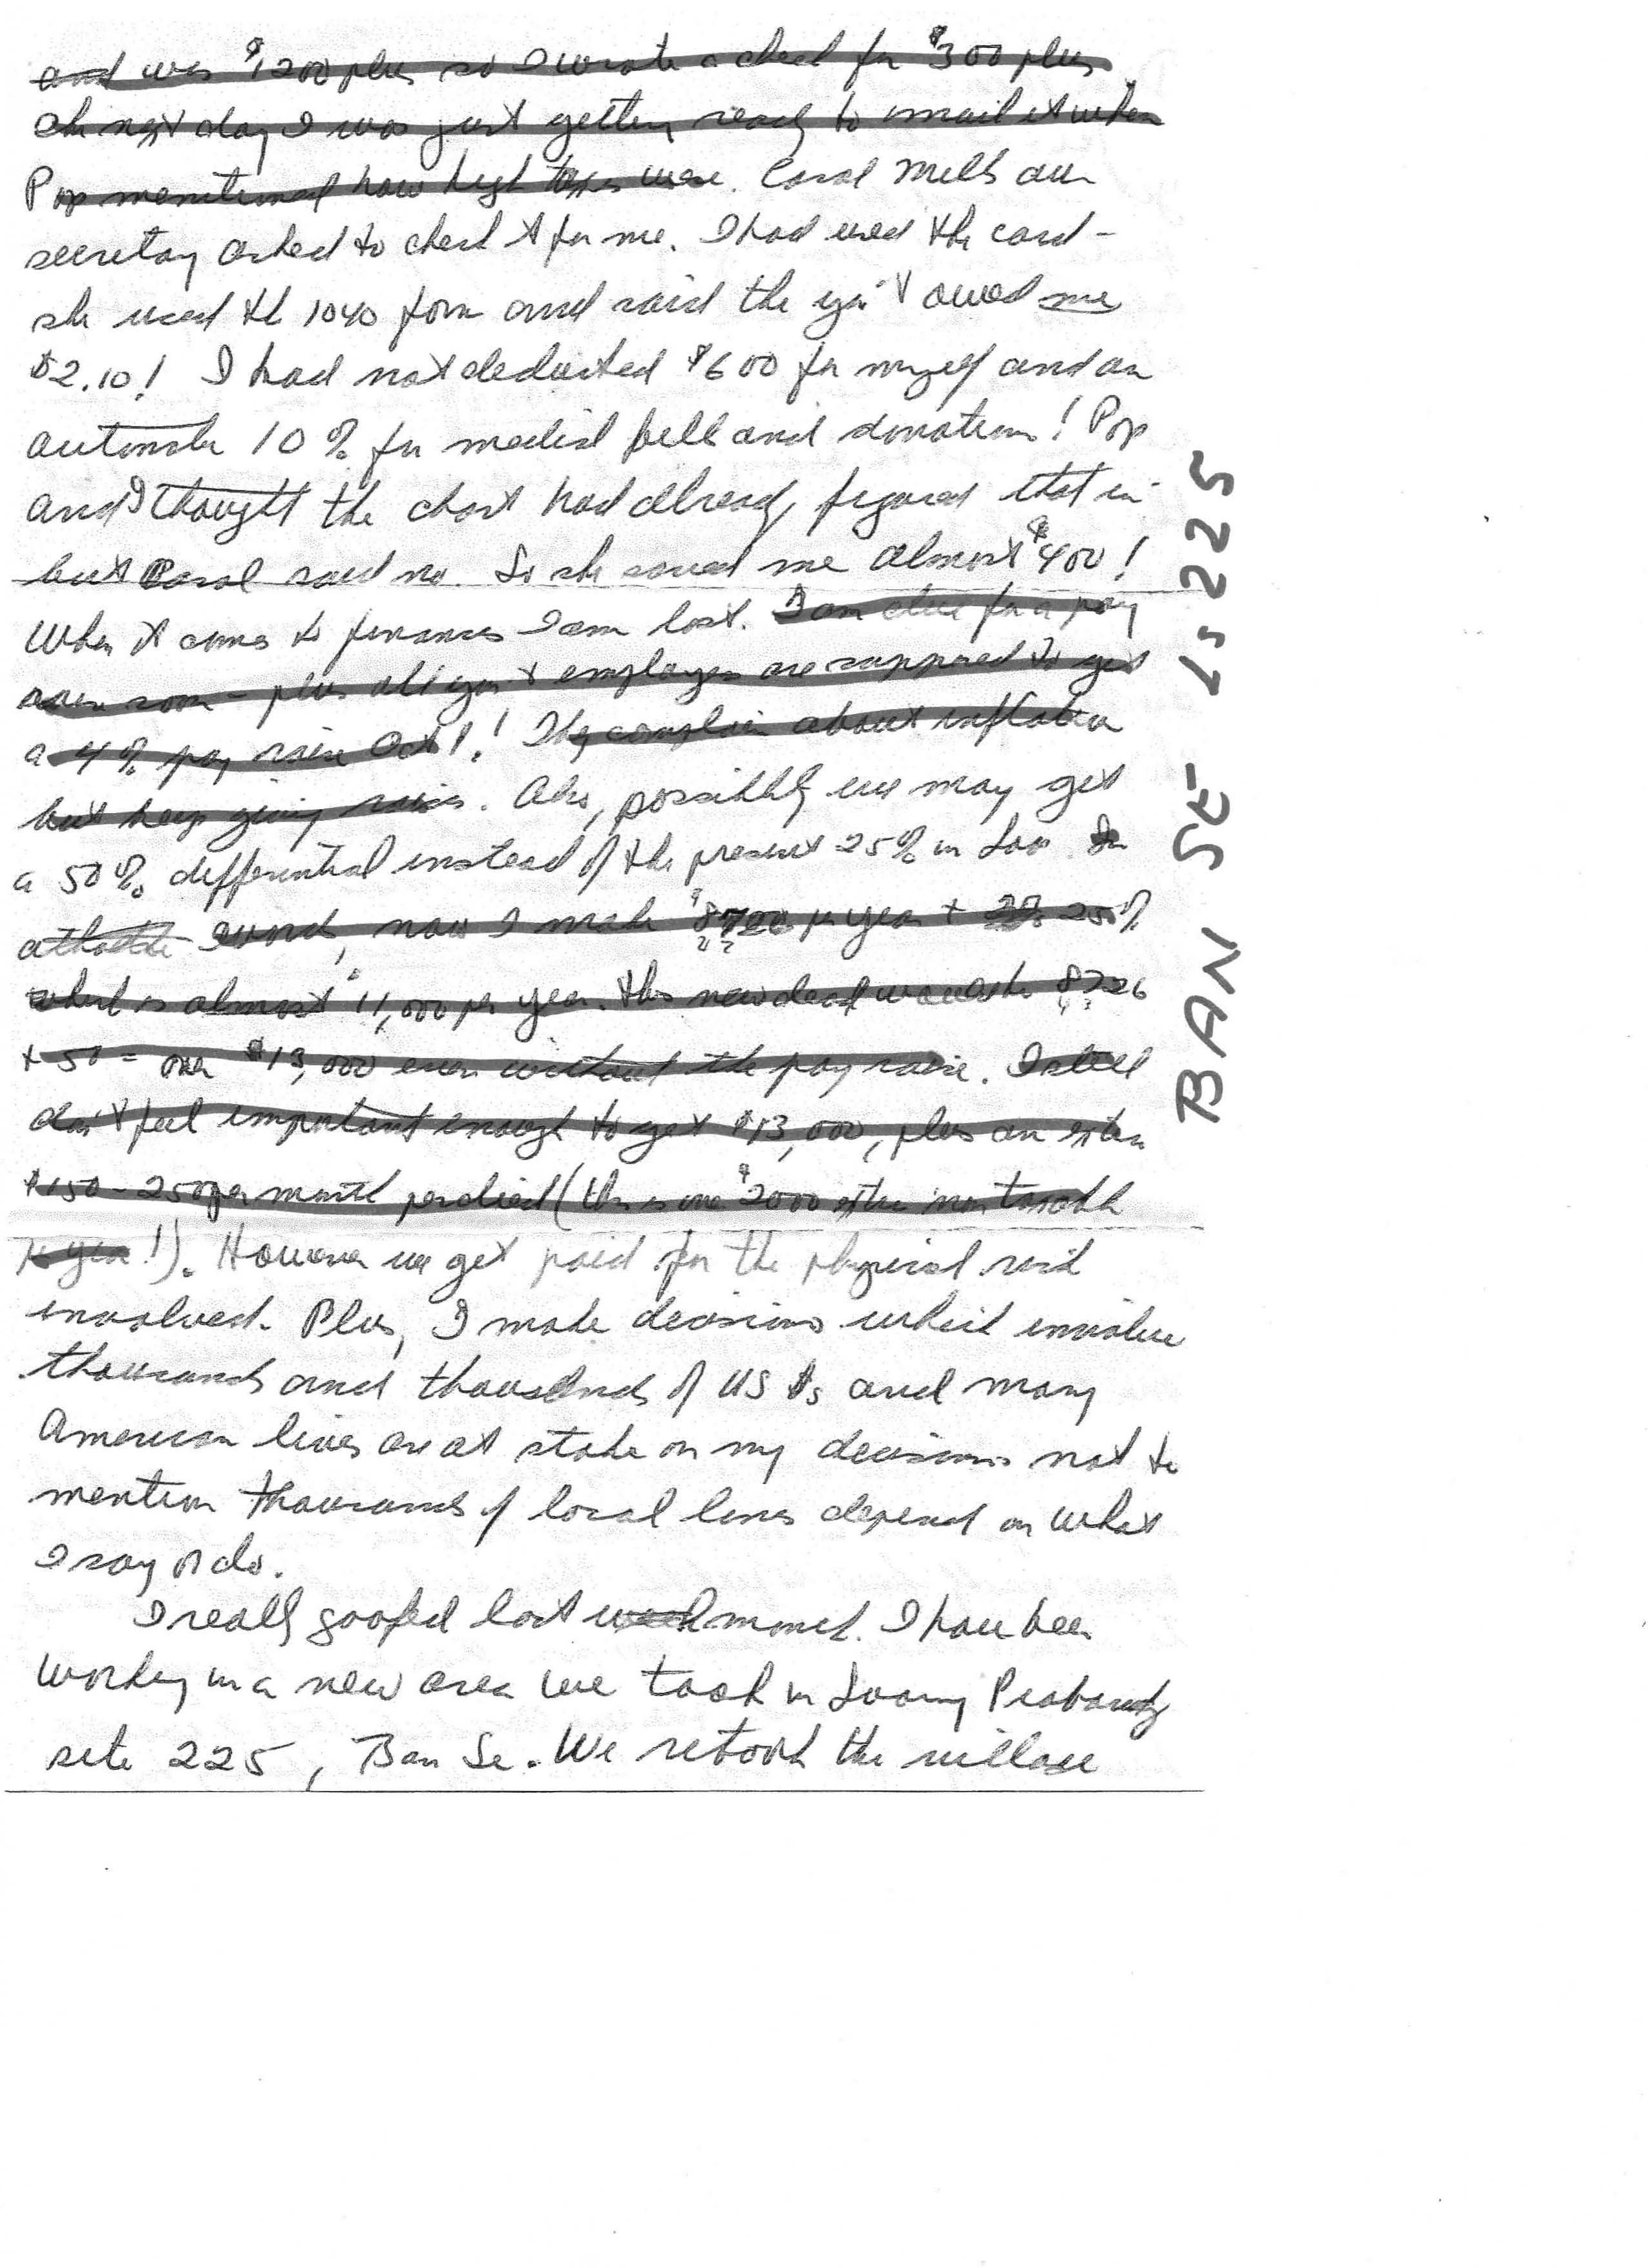 and was $1200 plus so I wrote a check for $300 plus.
The next day I was just getting ready to mail it when
Pop mentioned how high taxes were. Carol Mills our
secretary asked to check it for me. I had used the card -
she used the 1040 form and said the gov't owed me
$2.10! I had not deducted $600 for myself and an
automatic 10% for medical bills and donations! Pop
and I thought the chart had already figured that in -
but Carol said no. So she saved me almost $400!
When it comes to finances I am lost. I am due for a pay
raise soon - plus all gov't employees are supposed to get
a 4% pay raise Oct 1! They complain about inflation
but keep giving raises. Also, possibly we may get
a 50% differential instead of the present 25% in Laos. In
other words, now I make per year + 25%
which is almost $11,000 per year. This new deal would be 8726
+ 50 = over $13,000 even without the pay raise. I still
don't feel important enough to get $13,000, plus an extra
$150 - 250 per month per diem (this is over $2000 extra non taxable
per year!). However we get paid for the physical risk
involved. Plus, I make decisions which involve
thousands and thousands of US $s and many
American lives are at stake on my decisions not to
mention thousands of local lives depend on what
I say or do.
I really goofed last month. I have been
working in a new area we took in Luang Prabang
site 225, Ban Se. We retook the village
BAN SE LS 225